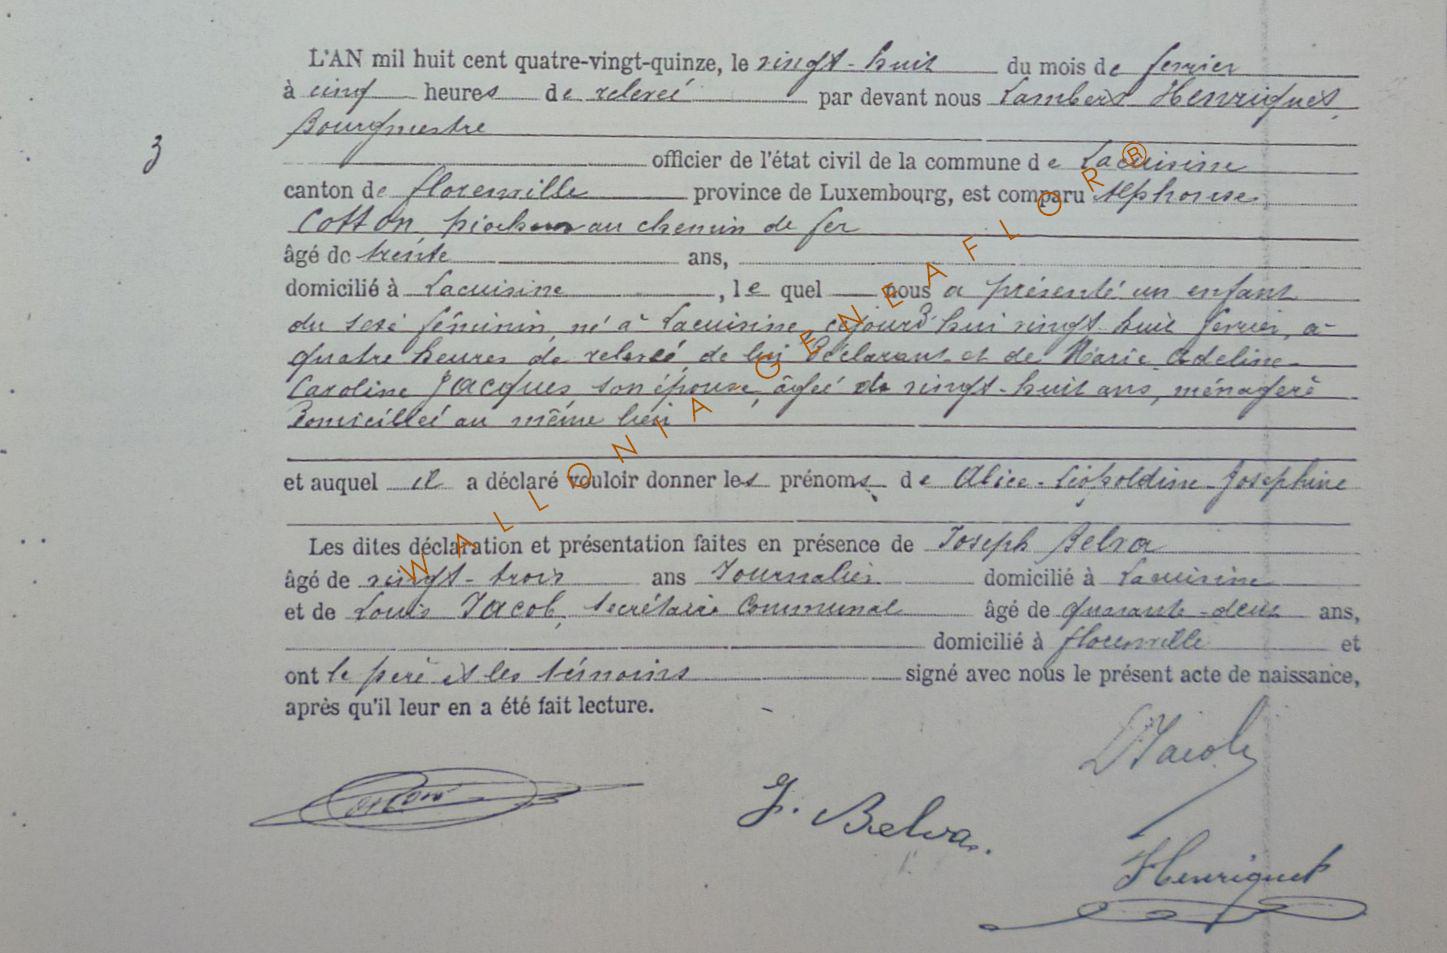 L'AN mil huit cent quatre-vingt-quinze, le vingt-huit du mois de fevrier
à cinq heures de relevée par devant nous Lambert Henriquet,
Bourgmestre
3
officier de l'état civil de la commune de Lacuisine
canton de florenville province de Luxembourg, est comparu Alphonse
Cotton, piocheur au chemin de fer
âgé de trente ans,
domicilié à Lacuisine, le quel nous a présenté un enfant
du sexe féminin né à Lacuisine, cejourd'hui vingt-huit fevrier, à
quatre heures de relevée, de lui Déclarant et de Marie Adeline
Caroline Jacques, son épouse, âgée de vingt-huit ans, ménagère
Domiciliée au même lieu
et auquel il a déclaré vouloir donner les prénoms de Alice-Léopoldine-Joséphine
Les dites déclaration et présentation faites en présence de Joseph Belva
âgé de vingt-trois ans Journalier domicilié à Lacuisine
et de Louis Jacob, Secrétaire Communal âgé de quarante-deux ans,
domicilié à florenville et
ont le père et les témoins signé avec nous le présent acte de naissance,
après qu'il leur en a été fait lecture.
LJacob
Cotton
J. Belva.
Henriquet
WALLONIA GENEAFLOR®